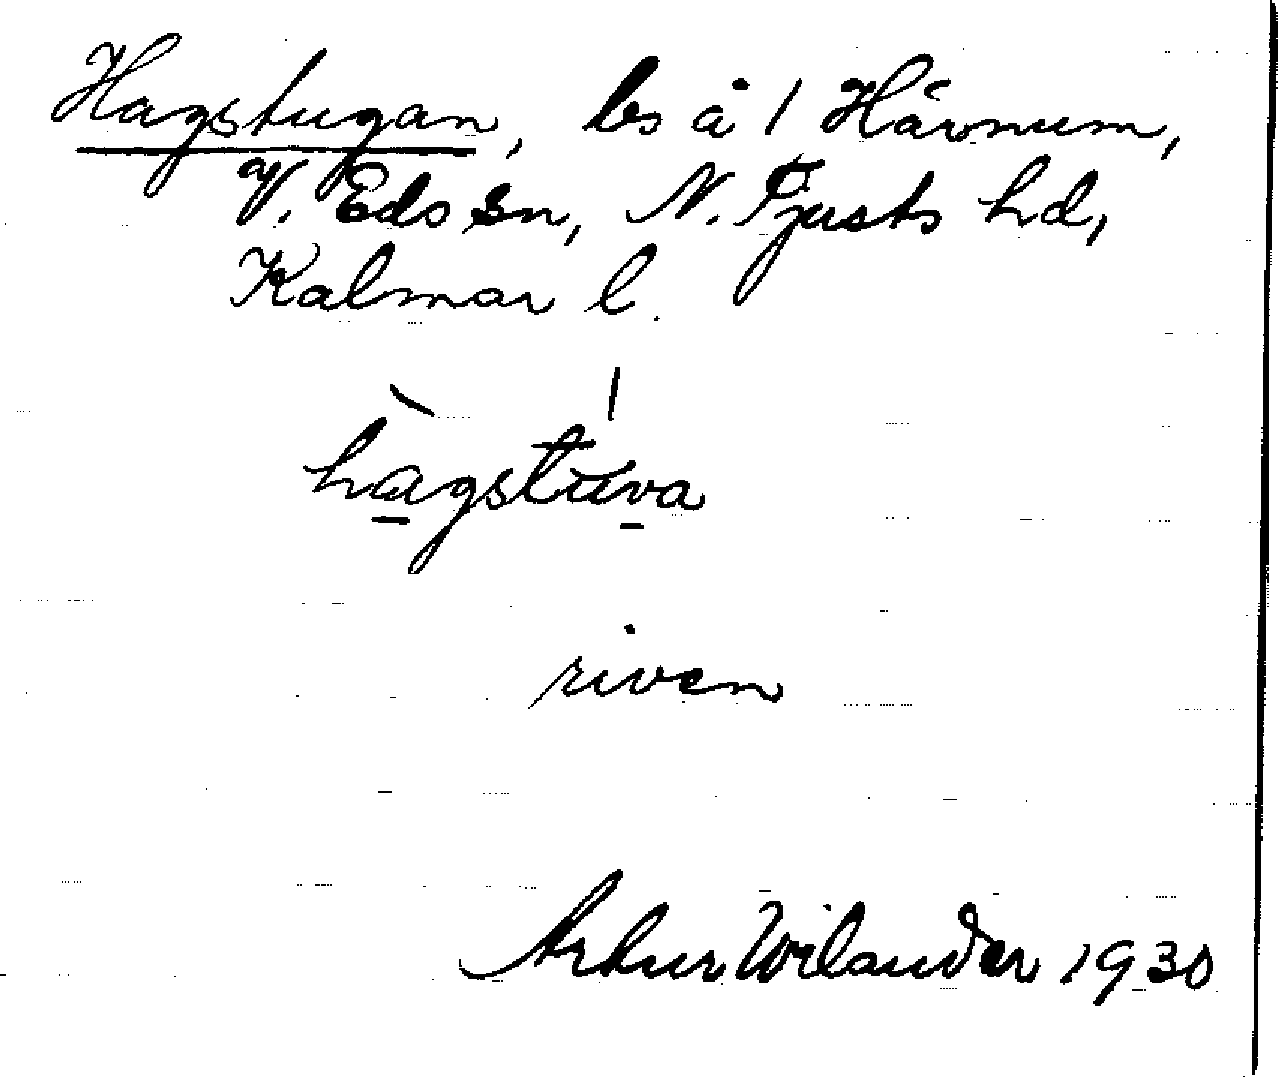 Hagstugan, ls å 1 Hävnum,
V. Eds sn, N. Tjusts hd,
Kalmar l.
hagstuva
riven
Arthur Wilander 1930